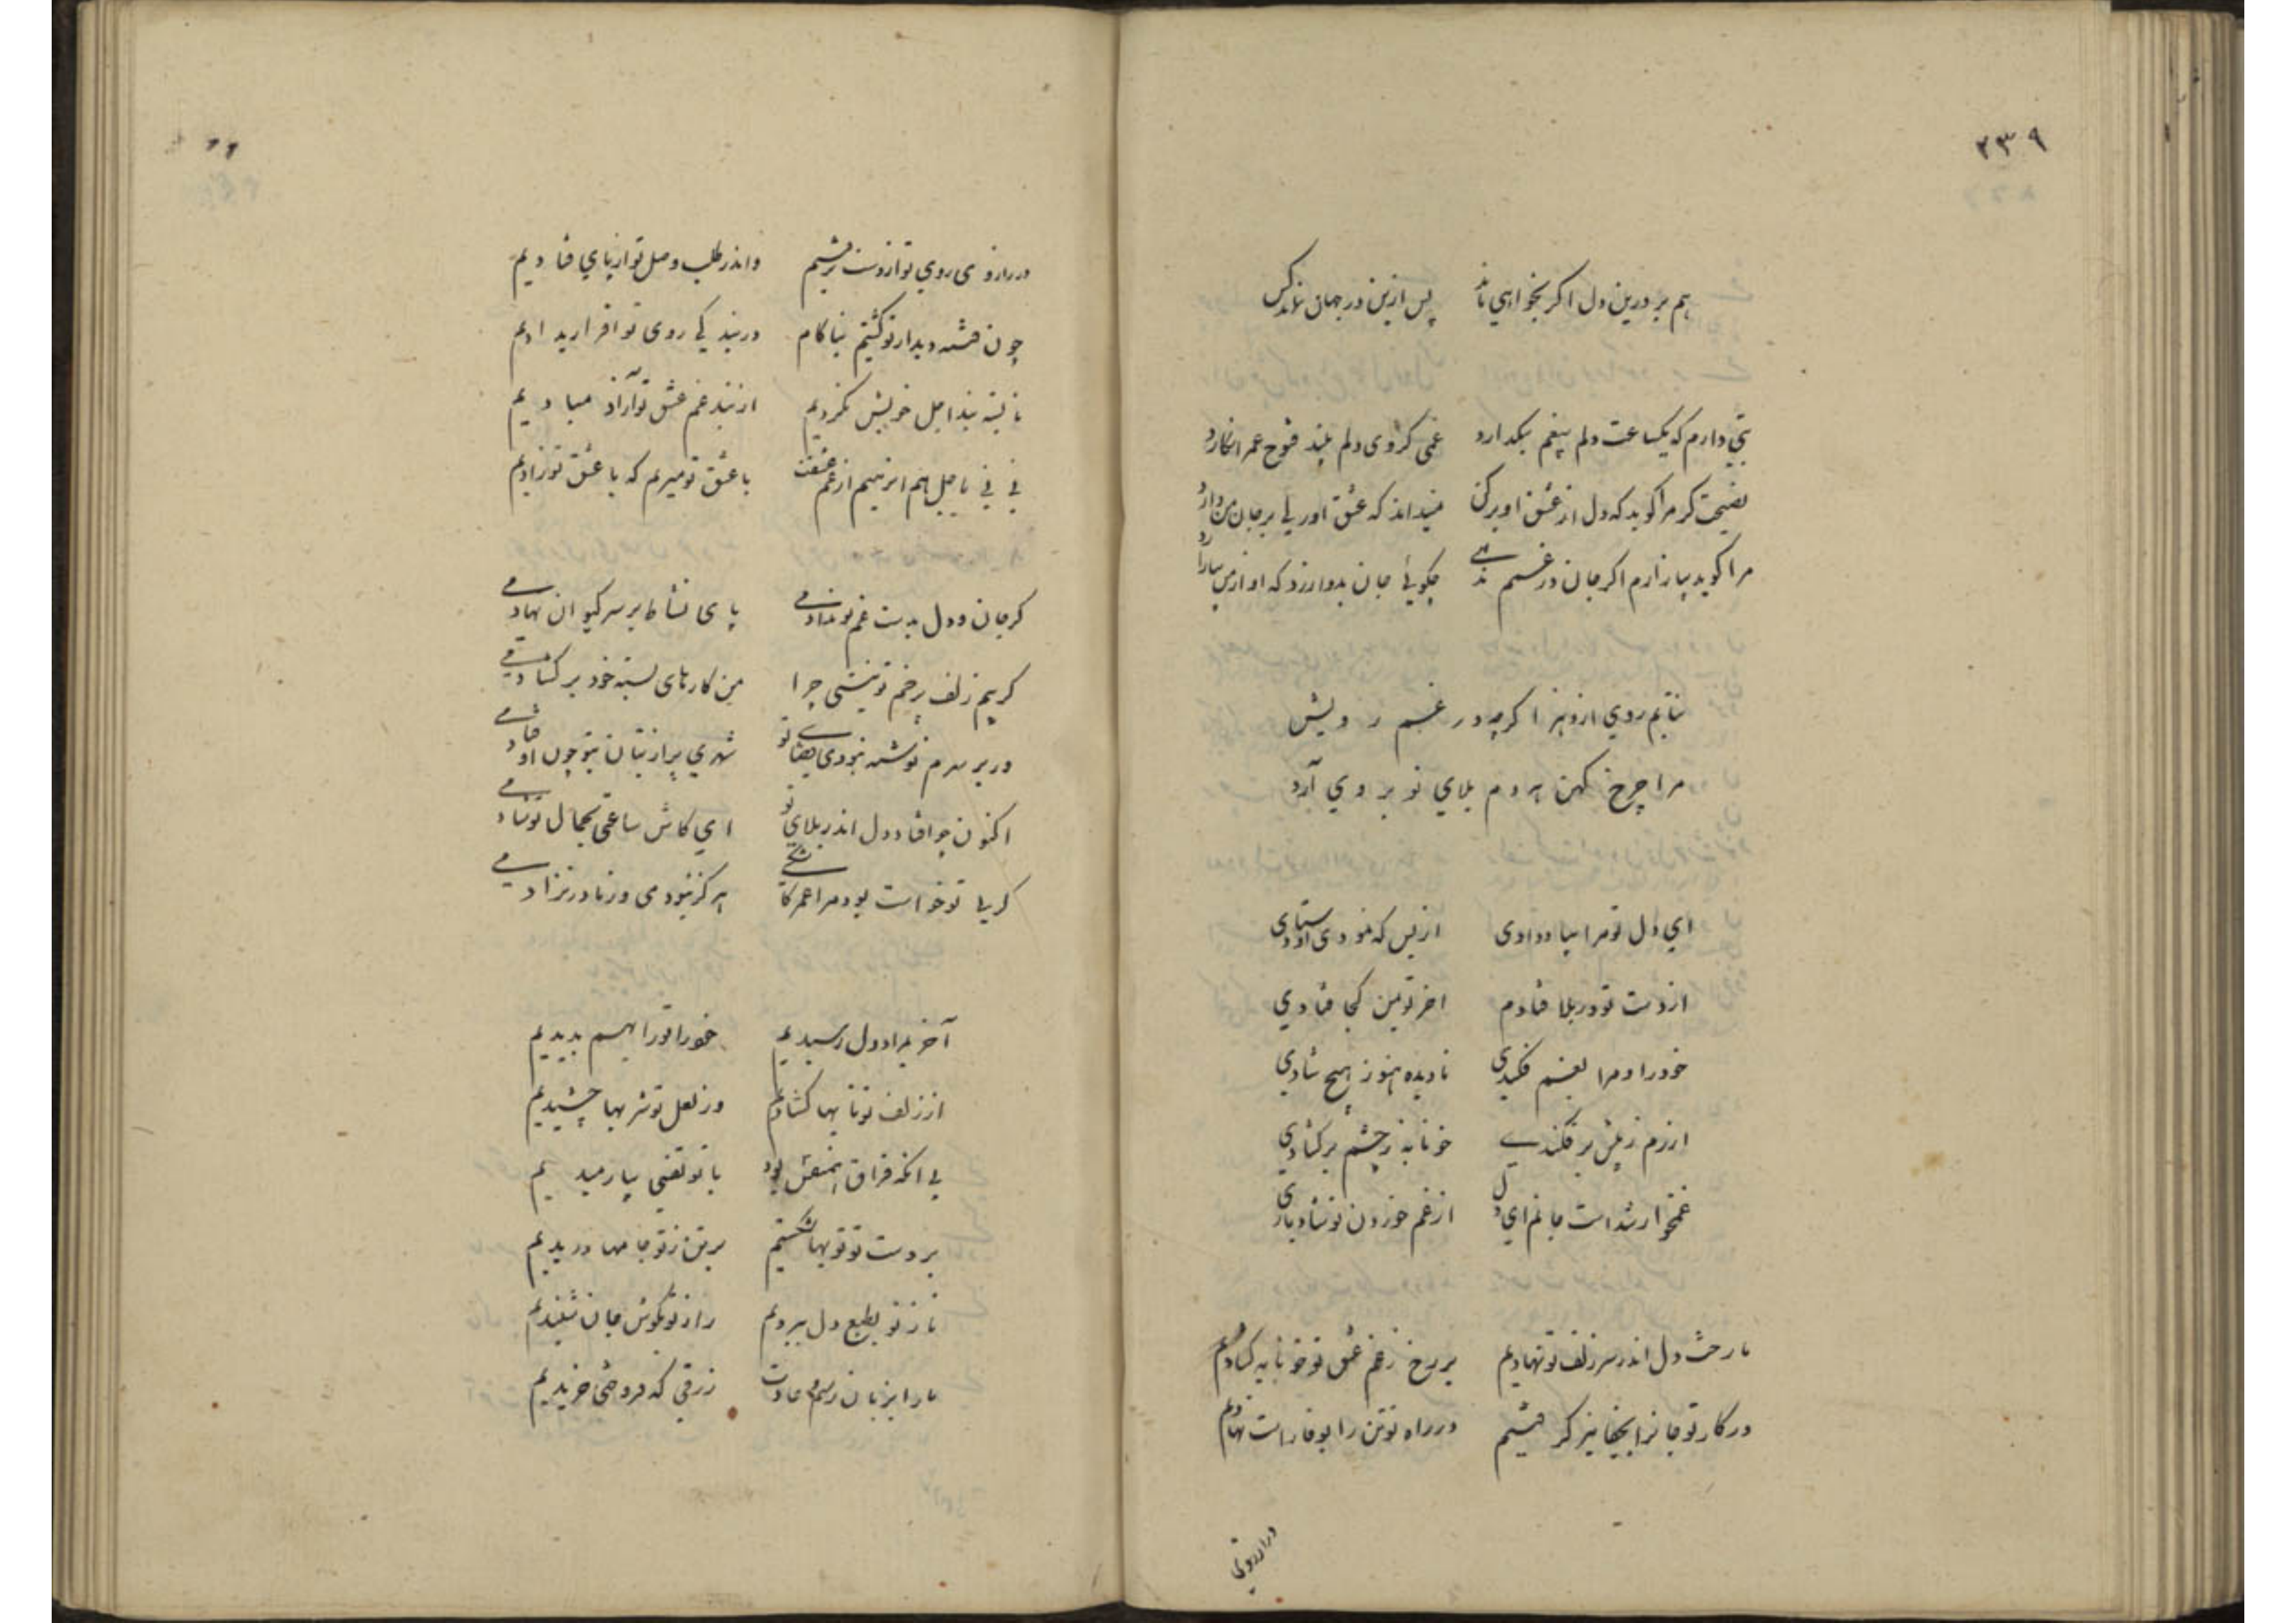 ۲۳۹
هم بر درین دل اکر بخواهی ماند پس ازین در جهان نماند کس
بتی دارم که یکساعت دلم بیغم بنکدارد غمی کز وی دلم بیند فتوح عمر انکارد
نصیحت کر مرا کوید که دل از عشق او برکن نمیداند که عشق او ولی بر جان من دارد
مرا کوید بیازارم اکر جان در غمم ندهی چکویی جان بدو ارزد که او از من بیازارد
نتابم روی ازو هرکز اکرچه در غم رویش
مرا چرخ کهن هر دم بلای نو بروی آرد
ای دل تو مرا بباد دادی از بس که نمودی اوستادی
از دست تو در بلا فتادم اخر تو بمن کجا فتادی
خود را و مرا بغم فکندی نادیده هنوز هیچ شادی
ارزم ز پیش برفکندی خونابه ز چشم برکشادی
غمخوار شداست جانم ای دل از غم خوردن تو شاد بادی
ما رخت دل اندر سر زلف تو نهادیم بر رخ ز غم عشق تو خونابه کشادیم
در کار تو جانرا بجفا نیز کر فتیم در راه تو تن را بوفا راست نهادیم
در ارزوی
در ارزوی روی تو از دست برفتیم واندر طلب وصل تو از پای فتادیم
چون فتنه دیدار تو کشتیم بناکام در بندکی روی تو اقرار بدادیم
تا بسته بند اجل خویش نکردیم از بند غم عشق تو آزاد مبادیم
نی نی باجل هم نرهیم از غم عشقت با عشق تو میریم که با عشق تو زادیم
کر جان و دل بدست غم تو ندادمی پای نشاط بر سر کیوان نهادمی
کر بیم زلف پرخم تو نیستی چرا من کارهای بسته خود برکشادمی
ور بر سرم نوشته نبودی قضای تو شهری پر از بتان بتو چون اوفتادمی
اکنون چو اوفتاد دل اندر بلای تو ای کاش ساعتی بجمال تو شادمی
کر بی تو خواست بود مرا عمر کاشکی هرکز نبودمی و ز مادر نزادمی
آخر بمراد دل رسیدیم خود را و ترا بهم بدیدیم
از زلف تو تابها کشادیم وز لعل تو شربها چشیدیم
بی انکه فراق همنفس بود با تو نفسی بیارمیدیم
بر دست تو توبها شکستیم بر تن ز تو جامها دریدیم
ناز تو بطبع دل ببردیم راز تو بکوش جان شنیدیم
ما را بزبان رسم و عادت زرقی که فروختی خریدیم